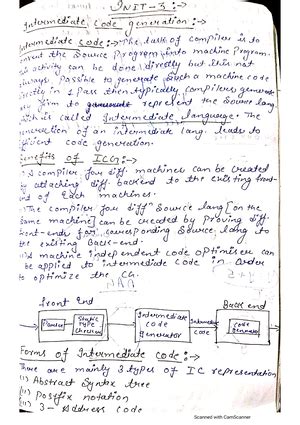 UNIT-3
Intermediate Code generation :→
Intermediate code :→ The task of compiler is to
convert the Source Program into machine Program.
This activity can be done directly but it is not
always Possible to generate such a machine code
directly in 1 Pass then typically compilers generate
an form to represent the source lang.
which is called Intermediate language. The
generation of an intermediate lang. leads to
efficient code generation.
Benefits of ICG :→
A compiler for diff machines can be created
by attaching diff. backend to the existing front-
end of Each machines.
The compiler for diff Source lang (on the
same machine) can be created by proving diff.
front-ends for corresponding Source lang to
the existing Back-end.
A machine independent code optimiser can
be applied to intermediate code in order
to optimize the CG.
front End
Back end
Parser
Static type checker
Intermediate code Generator
Intermediate code
Code Generator
Forms of Intermediate code :→
There are mainly 3 types of IC representation
(i) Abstract Syntax tree
(ii) Postfix notation
3-Address code
Scanned with CamScanner